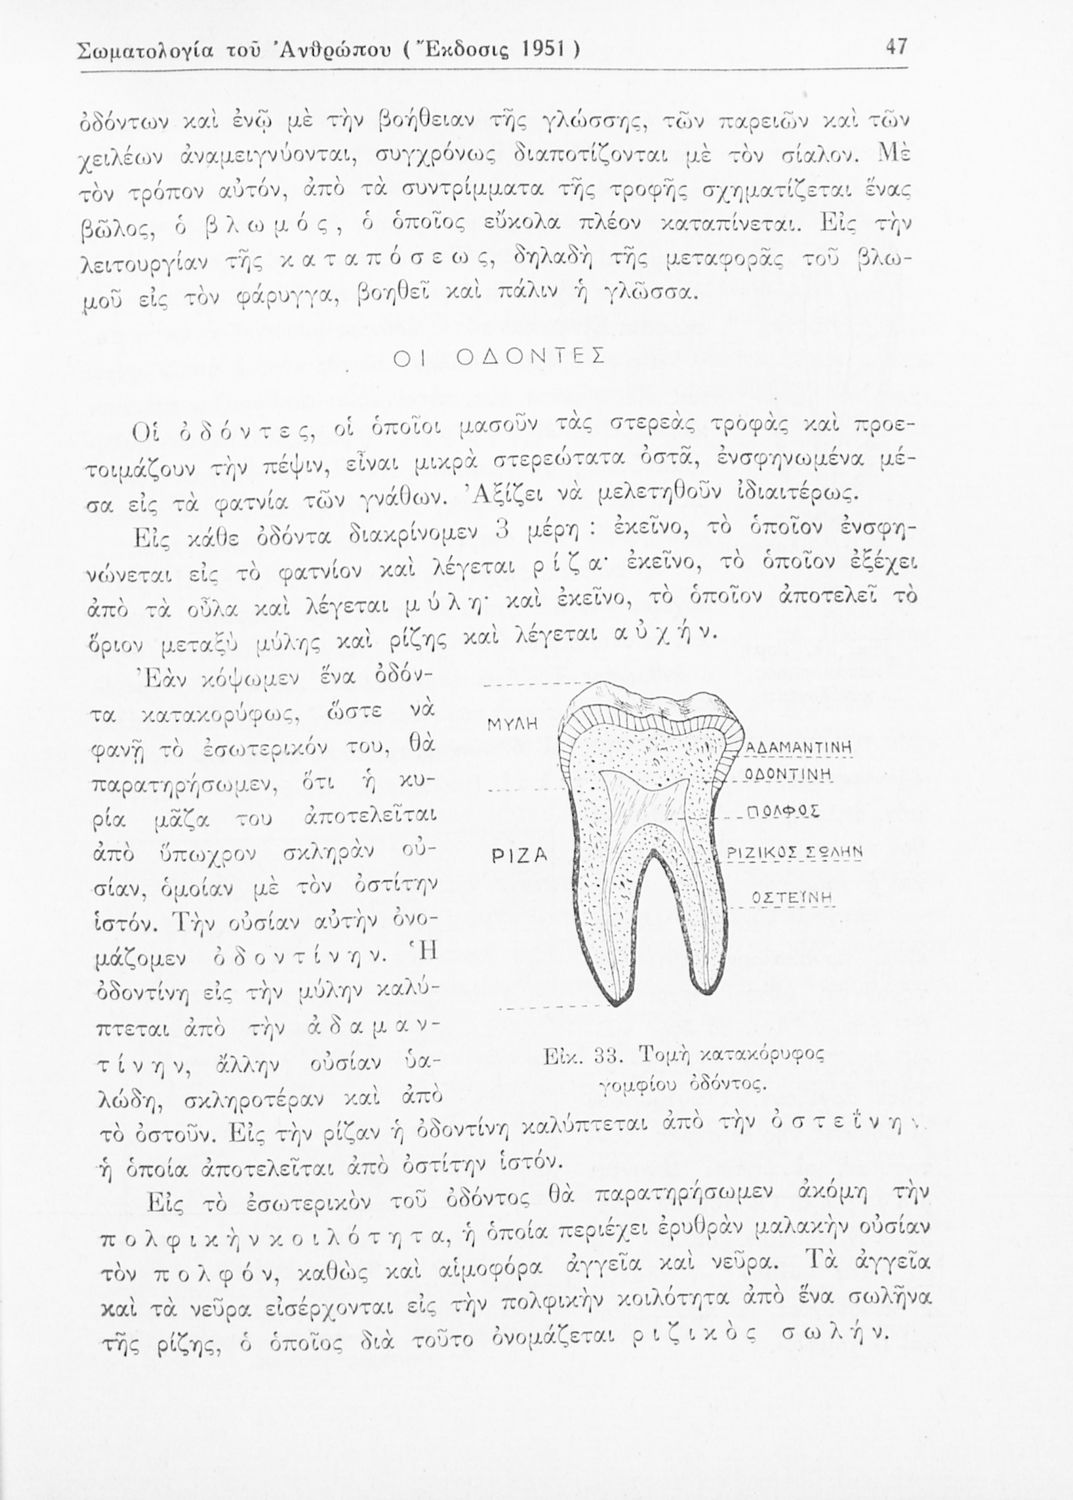 Σωματολογία τοῦ Ἀνθρώπου ( Ἔκδοσις 1951 ) 47
ὀδόντων καὶ ἐνῷ μὲ τὴν βοήθειαν τῆς γλώσσης, τῶν παρειῶν καὶ τῶν
χειλέων ἀναμειγνύονται, συγχρόνως διαποτίζονται μὲ τὸν σίαλον. Μὲ
τὸν τρόπον αὐτόν, ἀπὸ τὰ συντρίμματα τῆς τροφῆς σχηματίζεται ἕνας
βῶλος, ὁ βλωμός, ὁ ὁποῖος εὔκολα πλέον καταπίνεται. Εἰς τὴν
λειτουργίαν τῆς καταπόσεως, δηλαδὴ τῆς μεταφορᾶς τοῦ βλω-
μοῦ εἰς τὸν φάρυγγα, βοηθεῖ καὶ πάλιν ἡ γλῶσσα.
ΟΙ ΟΔΟΝΤΕΣ
Οἱ ὀδόντες, οἱ ὁποῖοι μασοῦν τὰς στερεὰς τροφὰς καὶ προε-
τοιμάζουν τὴν πέψιν, εἶναι μικρὰ στερεώτατα ὀστᾶ, ἐνσφηνωμένα μέ-
σα εἰς τὰ φατνία τῶν γνάθων. Ἀξίζει νὰ μελετηθοῦν ἰδιαιτέρως.
Εἰς κάθε ὀδόντα διακρίνομεν 3 μέρη : ἐκεῖνο, τὸ ὁποῖον ἐνσφη-
νώνεται εἰς τὸ φατνίον καὶ λέγεται ρίζα· ἐκεῖνο, τὸ ὁποῖον ἐξέχει
ἀπὸ τὰ οὖλα καὶ λέγεται μύλη· καὶ ἐκεῖνο, τὸ ὁποῖον ἀποτελεῖ τὸ
ὅριον μεταξὺ μύλης καὶ ρίζης καὶ λέγεται αὐχήν.
Ἐὰν κόψωμεν ἕνα ὀδόν-
τα κατακορύφως, ὥστε νὰ
φανῇ τὸ ἐσωτερικόν του, θὰ
παρατηρήσωμεν, ὅτι ἡ κυ-
ρία μᾶζα του ἀποτελεῖται
ἀπὸ ὕπωχρον σκληρὰν οὐ-
σίαν, ὁμοίαν μὲ τὸν ὀστίτην
ἱστόν. Τὴν οὐσίαν αὐτὴν ὀνο-
μάζομεν ὀδοντίνην. Ἡ
ὀδοντίνη εἰς τὴν μύλην καλύ-
πτεται ἀπὸ τὴν ἀδαμαν-
τίνην, ἄλλην οὐσίαν ὑα-
λώδη, σκληροτέραν καὶ ἀπὸ
τὸ ὀστοῦν. Εἰς τὴν ρίζαν ἡ ὀδοντίνη καλύπτεται ἀπὸ τὴν ὀστεΐνην
ἡ ὁποία ἀποτελεῖται ἀπὸ ὀστίτην ἱστόν.
ΜΥΛΗ
ΑΔΑΜΑΝΤΙΝΗ
ΟΔΟΝΤΙΝΗ
ΠΟΛΦΟΣ
ΡΙΖΑ
ΡΙΖΙΚΟΣ ΣΩΛΗΝ
ΟΣΤΕΪΝΗ
Εἰκ. 33. Τομὴ κατακόρυφος
γομφίου ὀδόντος.
Εἰς τὸ ἐσωτερικὸν τοῦ ὀδόντος θὰ παρατηρήσωμεν ἀκόμη τὴν
πολφικὴν κοιλότητα, ἡ ὁποία περιέχει ἐρυθρὰν μαλακὴν οὐσίαν
τὸν πολφόν, καθὼς καὶ αἱμοφόρα ἀγγεῖα καὶ νεῦρα. Τὰ ἀγγεῖα
καὶ τὰ νεῦρα εἰσέρχονται εἰς τὴν πολφικὴν κοιλότητα ἀπὸ ἕνα σωλῆνα
τῆς ρίζης, ὁ ὁποῖος διὰ τοῦτο ὀνομάζεται ριζικὸς σωλήν.